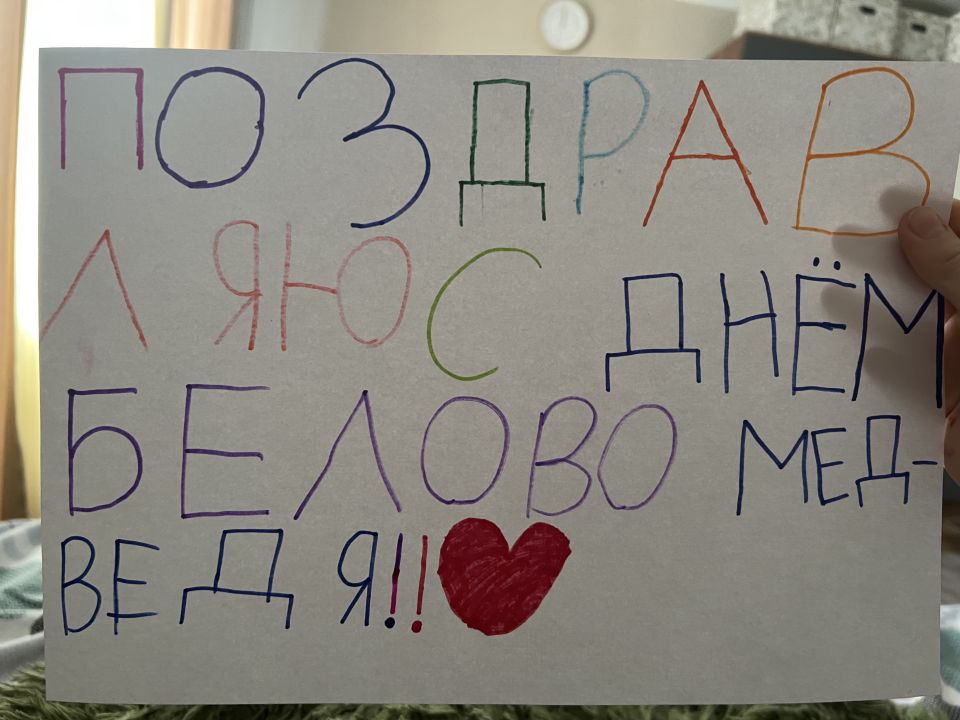 ПОЗДРАВ
ЛЯЮ С ДНЁМ
БЕЛОВО МЕД-
ВЕДЯ!!